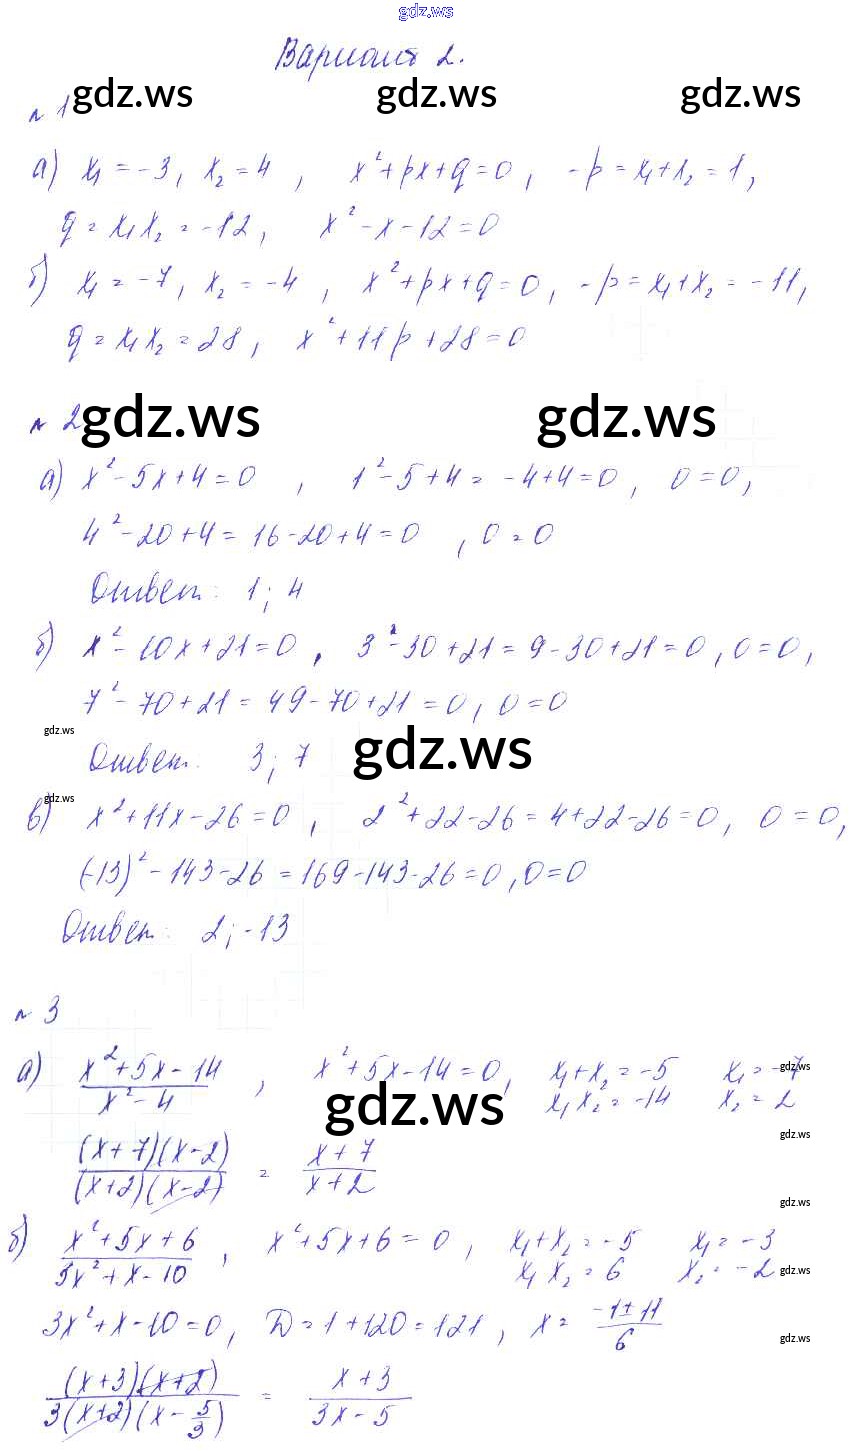 gdz.ws
Вариант 2.
gdz.ws gdz.ws gdz.ws
№ 1
а) x₁ = -3, x₂ = 4 , x² + px + q = 0 , -p = x₁ + x₂ = 1 ,
q = x₁x₂ = -12 , x² - x - 12 = 0
б) x₁ = -7 , x₂ = -4 , x² + px + q = 0 , -p = x₁ + x₂ = -11 ,
q = x₁x₂ = 28 , x² + 11p + 28 = 0
№ 2
gdz.ws gdz.ws
а) x² - 5x + 4 = 0 , 1² - 5 + 4 = -4 + 4 = 0 , 0 = 0 ,
4² - 20 + 4 = 16 - 20 + 4 = 0 , 0 = 0
Ответ: 1 ; 4
б) x² - 10x + 21 = 0 , 3² - 30 + 21 = 9 - 30 + 21 = 0 , 0 = 0 ,
7² - 70 + 21 = 49 - 70 + 21 = 0 , 0 = 0
gdz.ws
Ответ. 3 ; 7
gdz.ws
gdz.ws
в) x² + 11x - 26 = 0 , 2² + 22 - 26 = 4 + 22 - 26 = 0 , 0 = 0 ,
(-13)² - 143 - 26 = 169 - 143 - 26 = 0 , 0 = 0
Ответ: 2 ; -13
№ 3
а) (x² + 5x - 14)/(x² - 4) , x² + 5x - 14 = 0 , x₁ + x₂ = -5 x₁ = -7
x₁x₂ = -14 x₂ = 2
gdz.ws
gdz.ws
gdz.ws
((x + 7)(x - 2))/((x + 2)(x - 2)) = (x + 7)/(x + 2)
gdz.ws
б) (x² + 5x + 6)/(3x² + x - 10) , x² + 5x + 6 = 0 , x₁ + x₂ = -5 x₁ = -3
x₁x₂ = 6 x₂ = -2
gdz.ws
3x² + x - 10 = 0 , D = 1 + 120 = 121 , x = (-1 ± 11)/6
gdz.ws
((x + 3)(x + 2))/(3(x + 2)(x - 5/3)) = (x + 3)/(3x - 5)